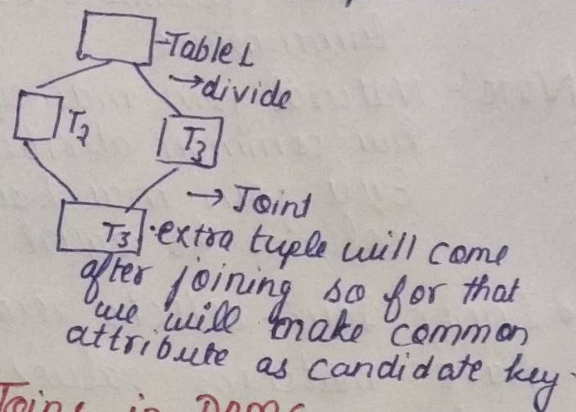 Table 1
→divide
T2
T3
→ Joint
T3 •extra tuple will come
after joining so for that
we will make common
attribute as candidate key.
Joins in DBMS